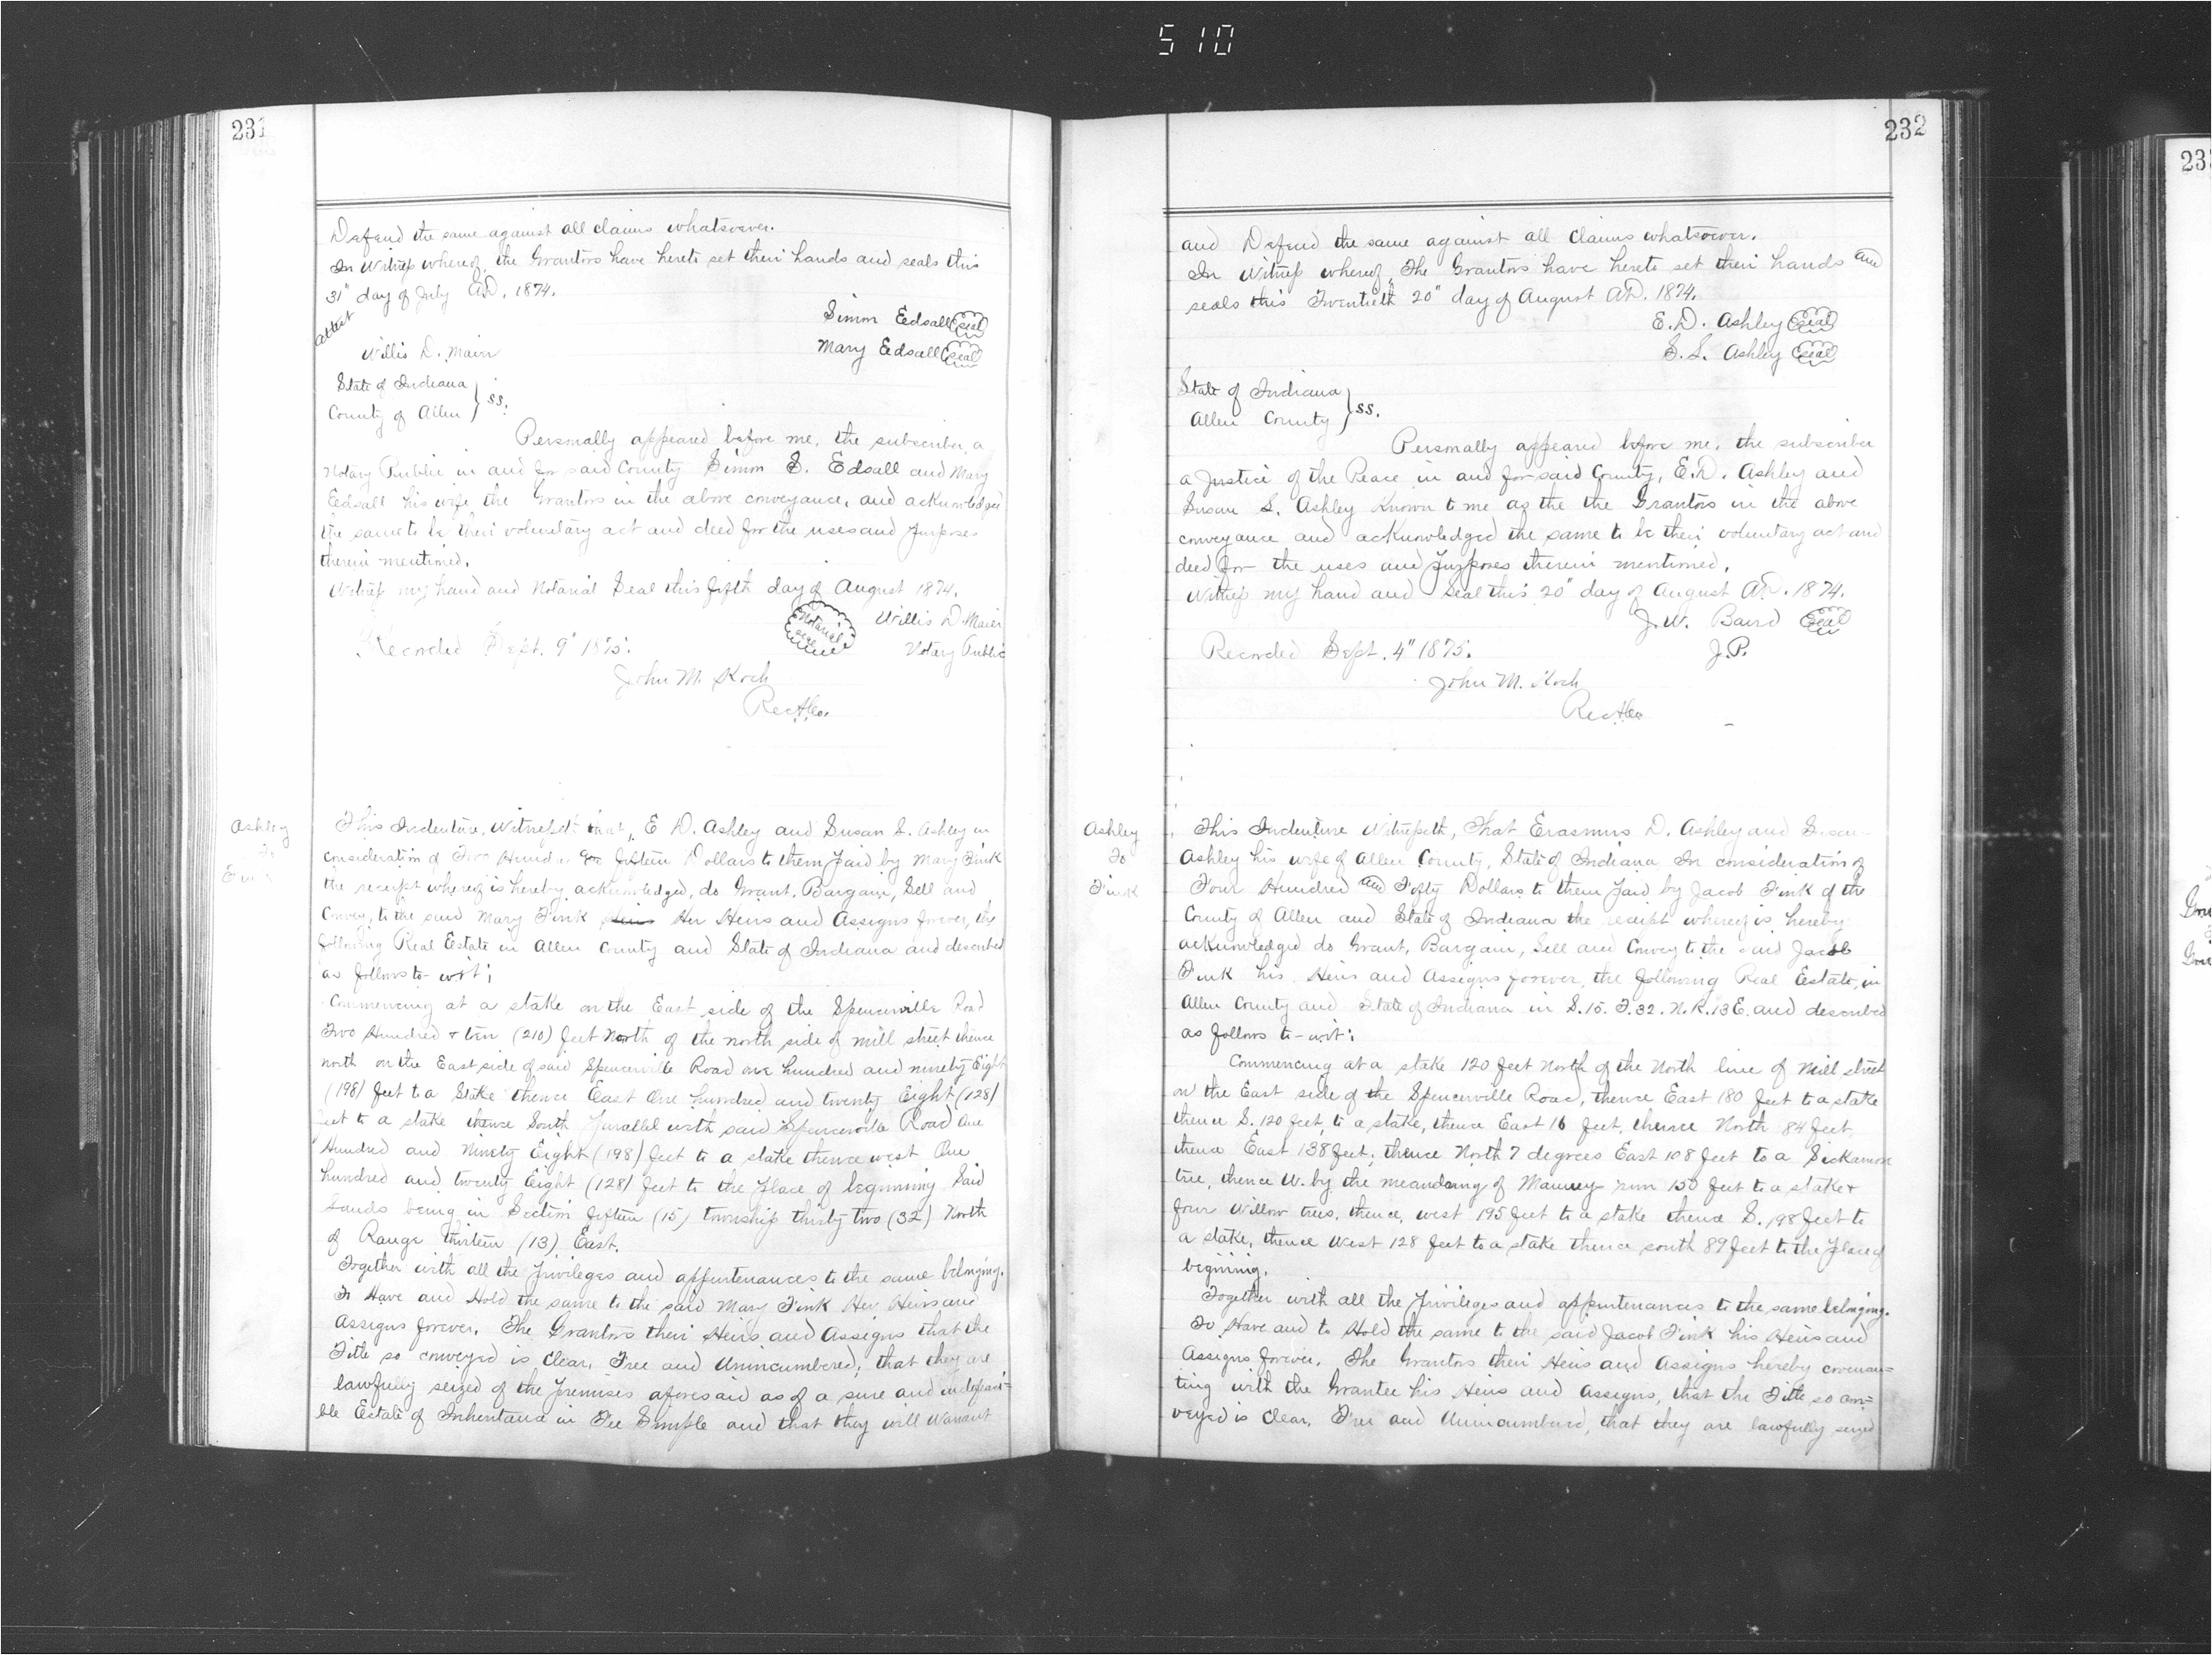 510
231
Defend the same against all claims whatsoever.
In Witness whereof, the Grantors have hereto set their hands and seals this
31" day of July A.D. 1874.
Attest
Simon Edsall (seal)
Willis D. Maier
Mary Edsall (seal)
State of Indiana
County of Allen } ss.
Personally appeared before me, the subscriber, a
Notary Public in and for said County Simon S. Edsall and Mary
Edsall his wife the Grantors in the above conveyance, and acknowledged
the same to be their voluntary act and deed for the uses and purposes
therein mentioned.
Witness my hand and Notarial Seal this fifth day of August 1874.
Notarial seal
Willis D. Maier
Notary Public
Recorded Sept. 9" 1875.
John M. Koch
Ashley
To
Fink
This Indenture, Witnesseth that, E D. Ashley and Susan S. Ashley in
consideration of Two Hundred & fifteen Dollars to them paid by Mary Fink
the receipt whereof is hereby acknowledged, do Grant, Bargain, Sell and
Convey, to the said Mary Fink Heirs Her Heirs and Assigns forever, the
following Real Estate in Allen County and State of Indiana and described
as follows to-wit;
Commencing at a stake on the East side of the Spencerville Road
Two Hundred & ten (210) feet North of the north side of mill street thence
north on the East side of said Spencerville Road one hundred and ninety Eight
(198) feet to a Stake thence East One hundred and twenty Eight (128)
feet to a stake thence South Parallel with said Spencerville Road One
Hundred and Ninety Eight (198) feet to a stake thence west One
hundred and twenty Eight (128) feet to the place of beginning Said
Lands being in Section fifteen (15) township thirty two (32) North
of Range thirteen (13) East.
Together with all the Privileges and appurtenances to the same belonging.
To Have and Hold the same to the said Mary Fink Her Heirs and
Assigns forever. The Grantors their Heirs and Assigns that the
Title so conveyed is Clear, Free and Unincumbered; that they are
lawfully seized of the Premises aforesaid as of a sure and indefeasi=
ble Estate of Inheritance in Fee Simple and that they will Warrant
232
and Defend the same against all claims whatsoever.
In Witness whereof, The Grantors have hereto set their hands and
seals this Twentieth 20" day of August A.D. 1874.
E. D. Ashley (seal)
S. S. Ashley (seal)
State of Indiana
Allen County } ss.
Personally appeared before me, the subscriber
a Justice of the Peace in and for said County, E. D. Ashley and
Susan S. Ashley Known to me as the the Grantors in the above
conveyance and acknowledged the same to be their voluntary act and
deed for the uses and purposes therein mentioned.
Witness my hand and Seal this 20" day of August A.D. 1874.
J. W. Baird (seal)
Recorded Sept. 4" 1875.
J.P.
John M. Koch
Ashley
To
Fink
This Indenture Witnesseth, That Erasmus D. Ashley and Susan
Ashley his wife of Allen County, State of Indiana In consideration of
Four Hundred and Fifty Dollars to them Paid by Jacob Fink of the
County of Allen and State of Indiana the receipt whereof is hereby
acknowledged do Grant, Bargain, Sell and Convey to the said Jacob
Fink his Heirs and Assigns forever, the following Real Estate, in
Allen County and State of Indiana in S. 15. T. 32. N. R. 13 E. and described
as follows to-wit:
Commencing at a stake 120 feet North of the North line of Mill street
on the East side of the Spencerville Road, thence East 180 feet to a stake
thence S. 120 feet, to a stake, thence East 16 feet, thence North 84 feet,
thence East 138 feet; thence North 7 degrees East 108 feet to a Sickamore
tree, thence W. by the meandering of run 150 feet to a stake &
four Willow trees, thence, west 195 feet to a stake thence S. 198 feet to
a stake, thence West 128 feet to a stake thence south 89 feet to the place of
begining.
Together with all the Privileges and appurtenances to the same belonging.
To Have and to Hold the same to the said Jacob Fink his Heirs and
Assigns forever. The Grantors their Heirs and Assigns hereby covenan=
ting with the Grantee his Heirs and Assigns, that the Title so con=
veyed is Clear, Free and Unincumbered, that they are lawfully seized